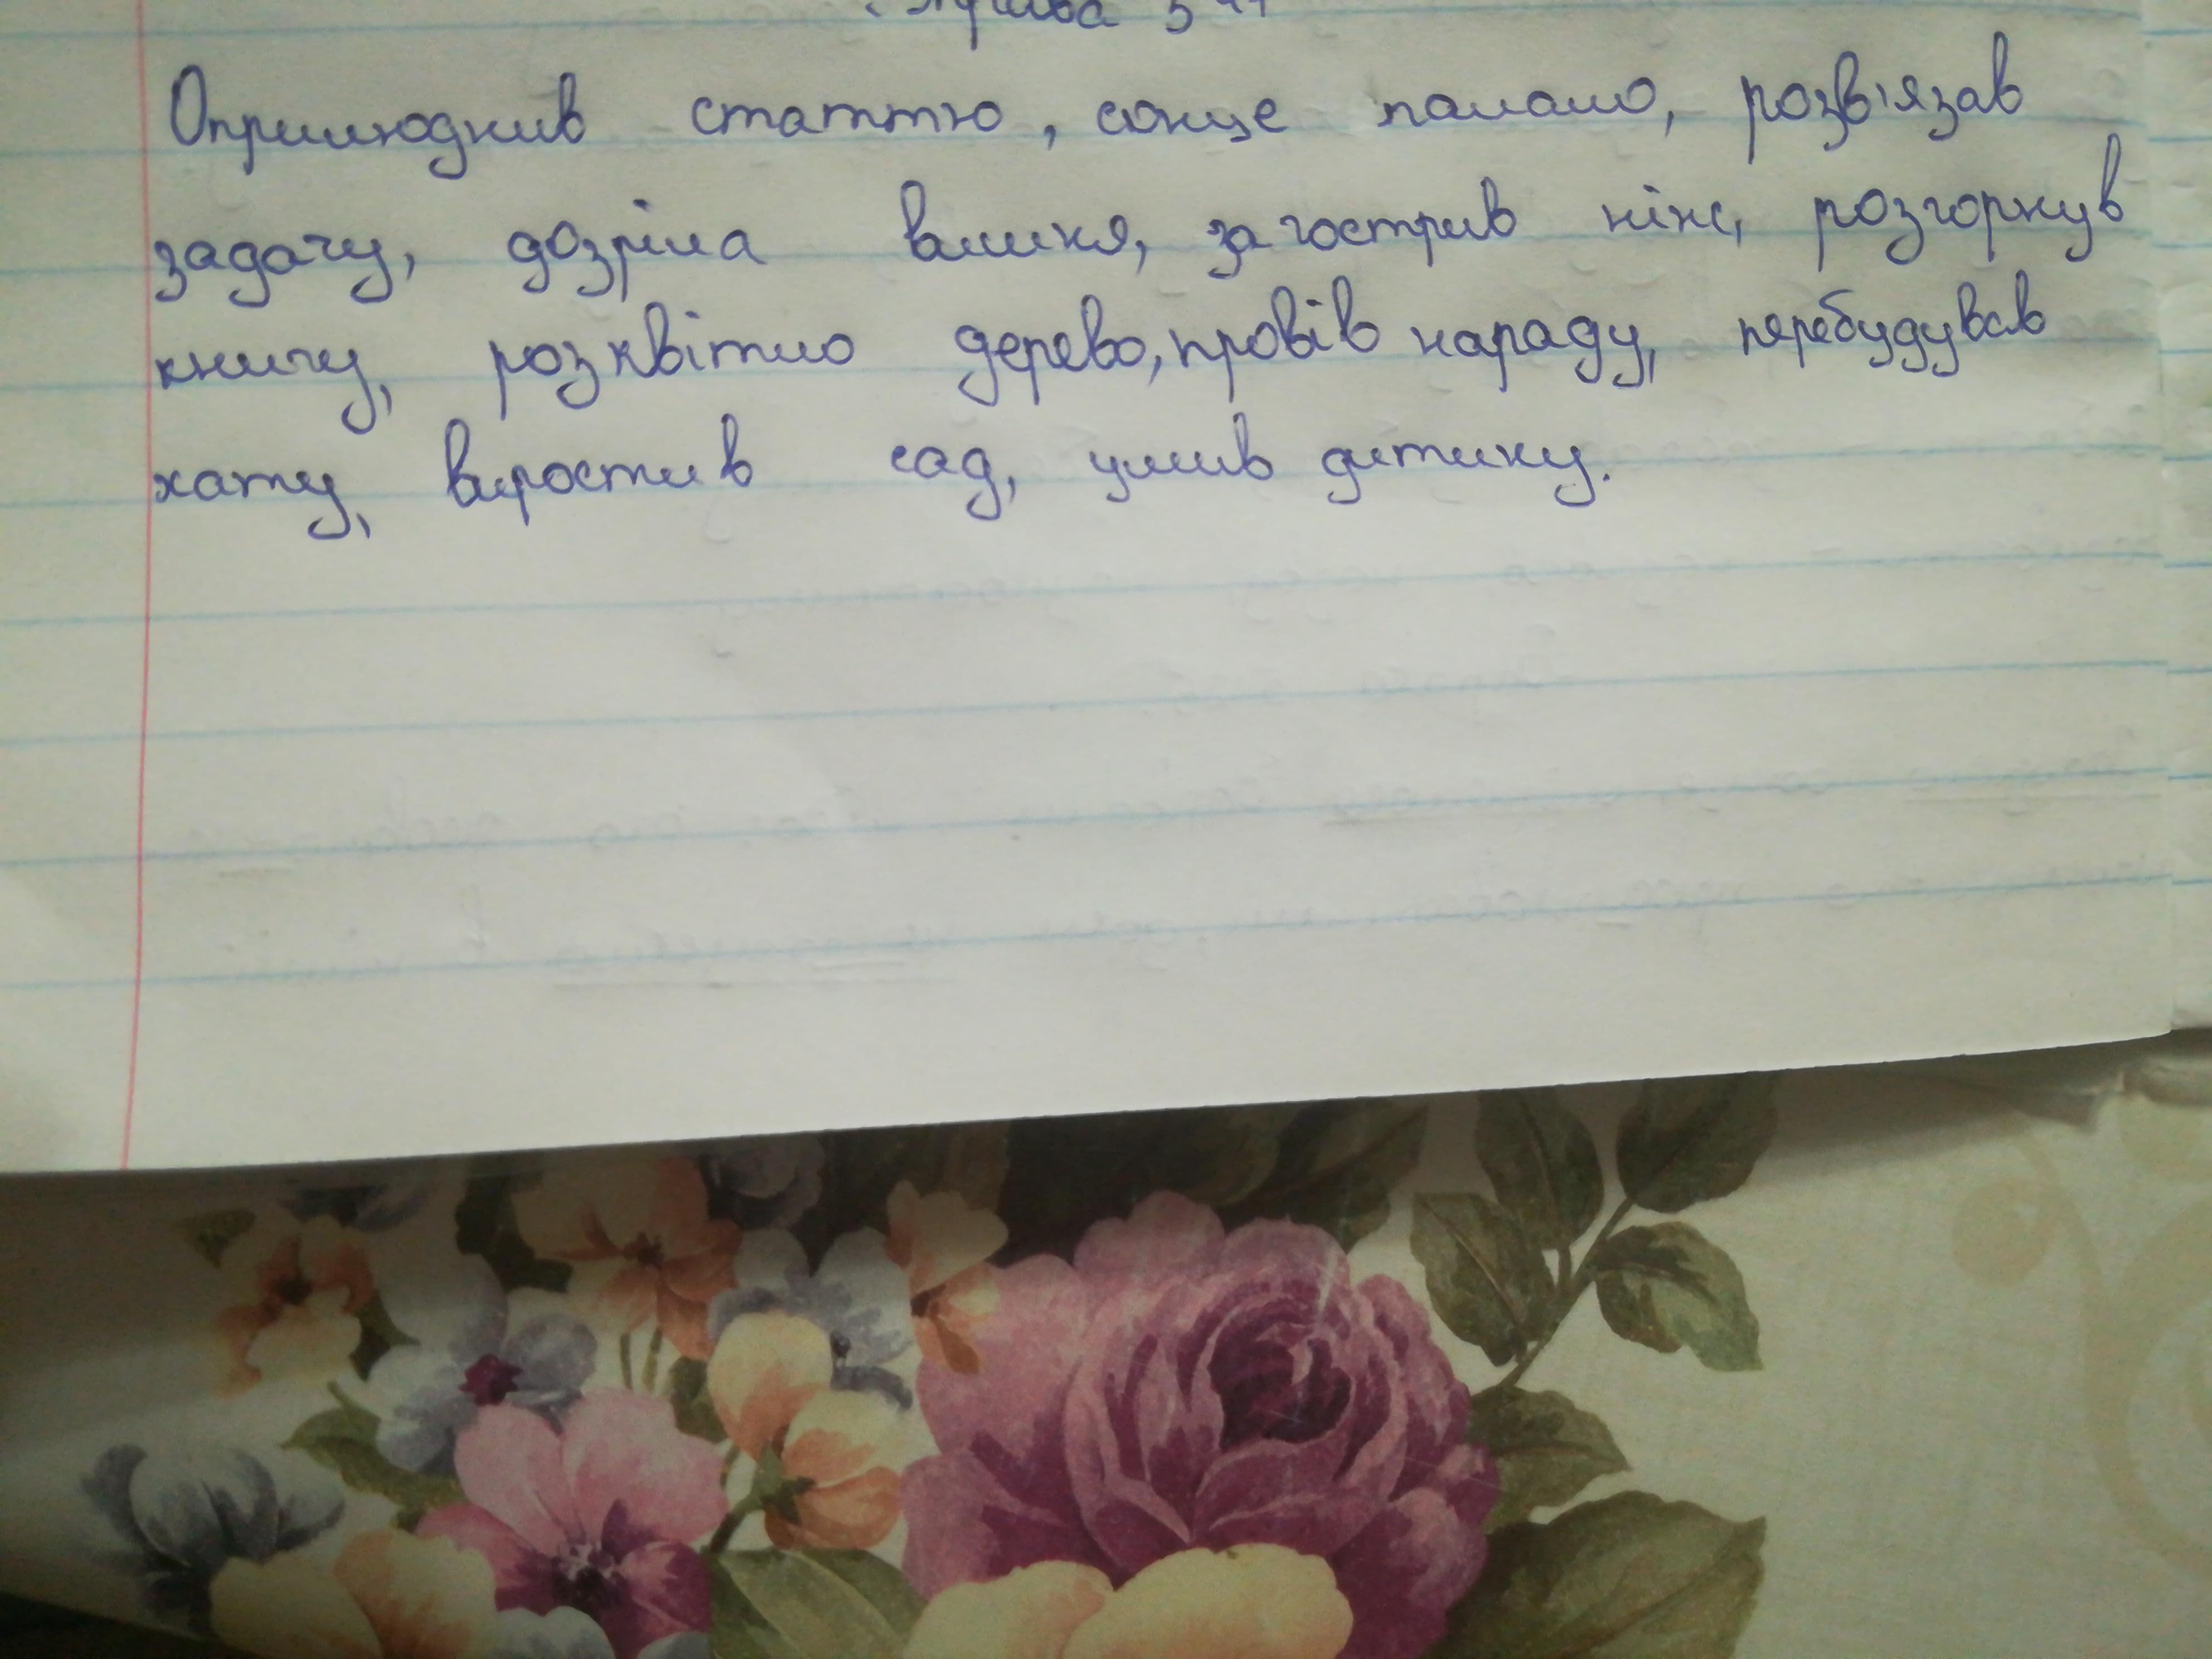 Оприлюднив статтю, сонце палало, розв'язав
задачу, дозріла вишня, загострив ніж, розгорнув
книгу, розквітло дерево, провів нараду, перебудував
хату, виростив сад, умив дитину.